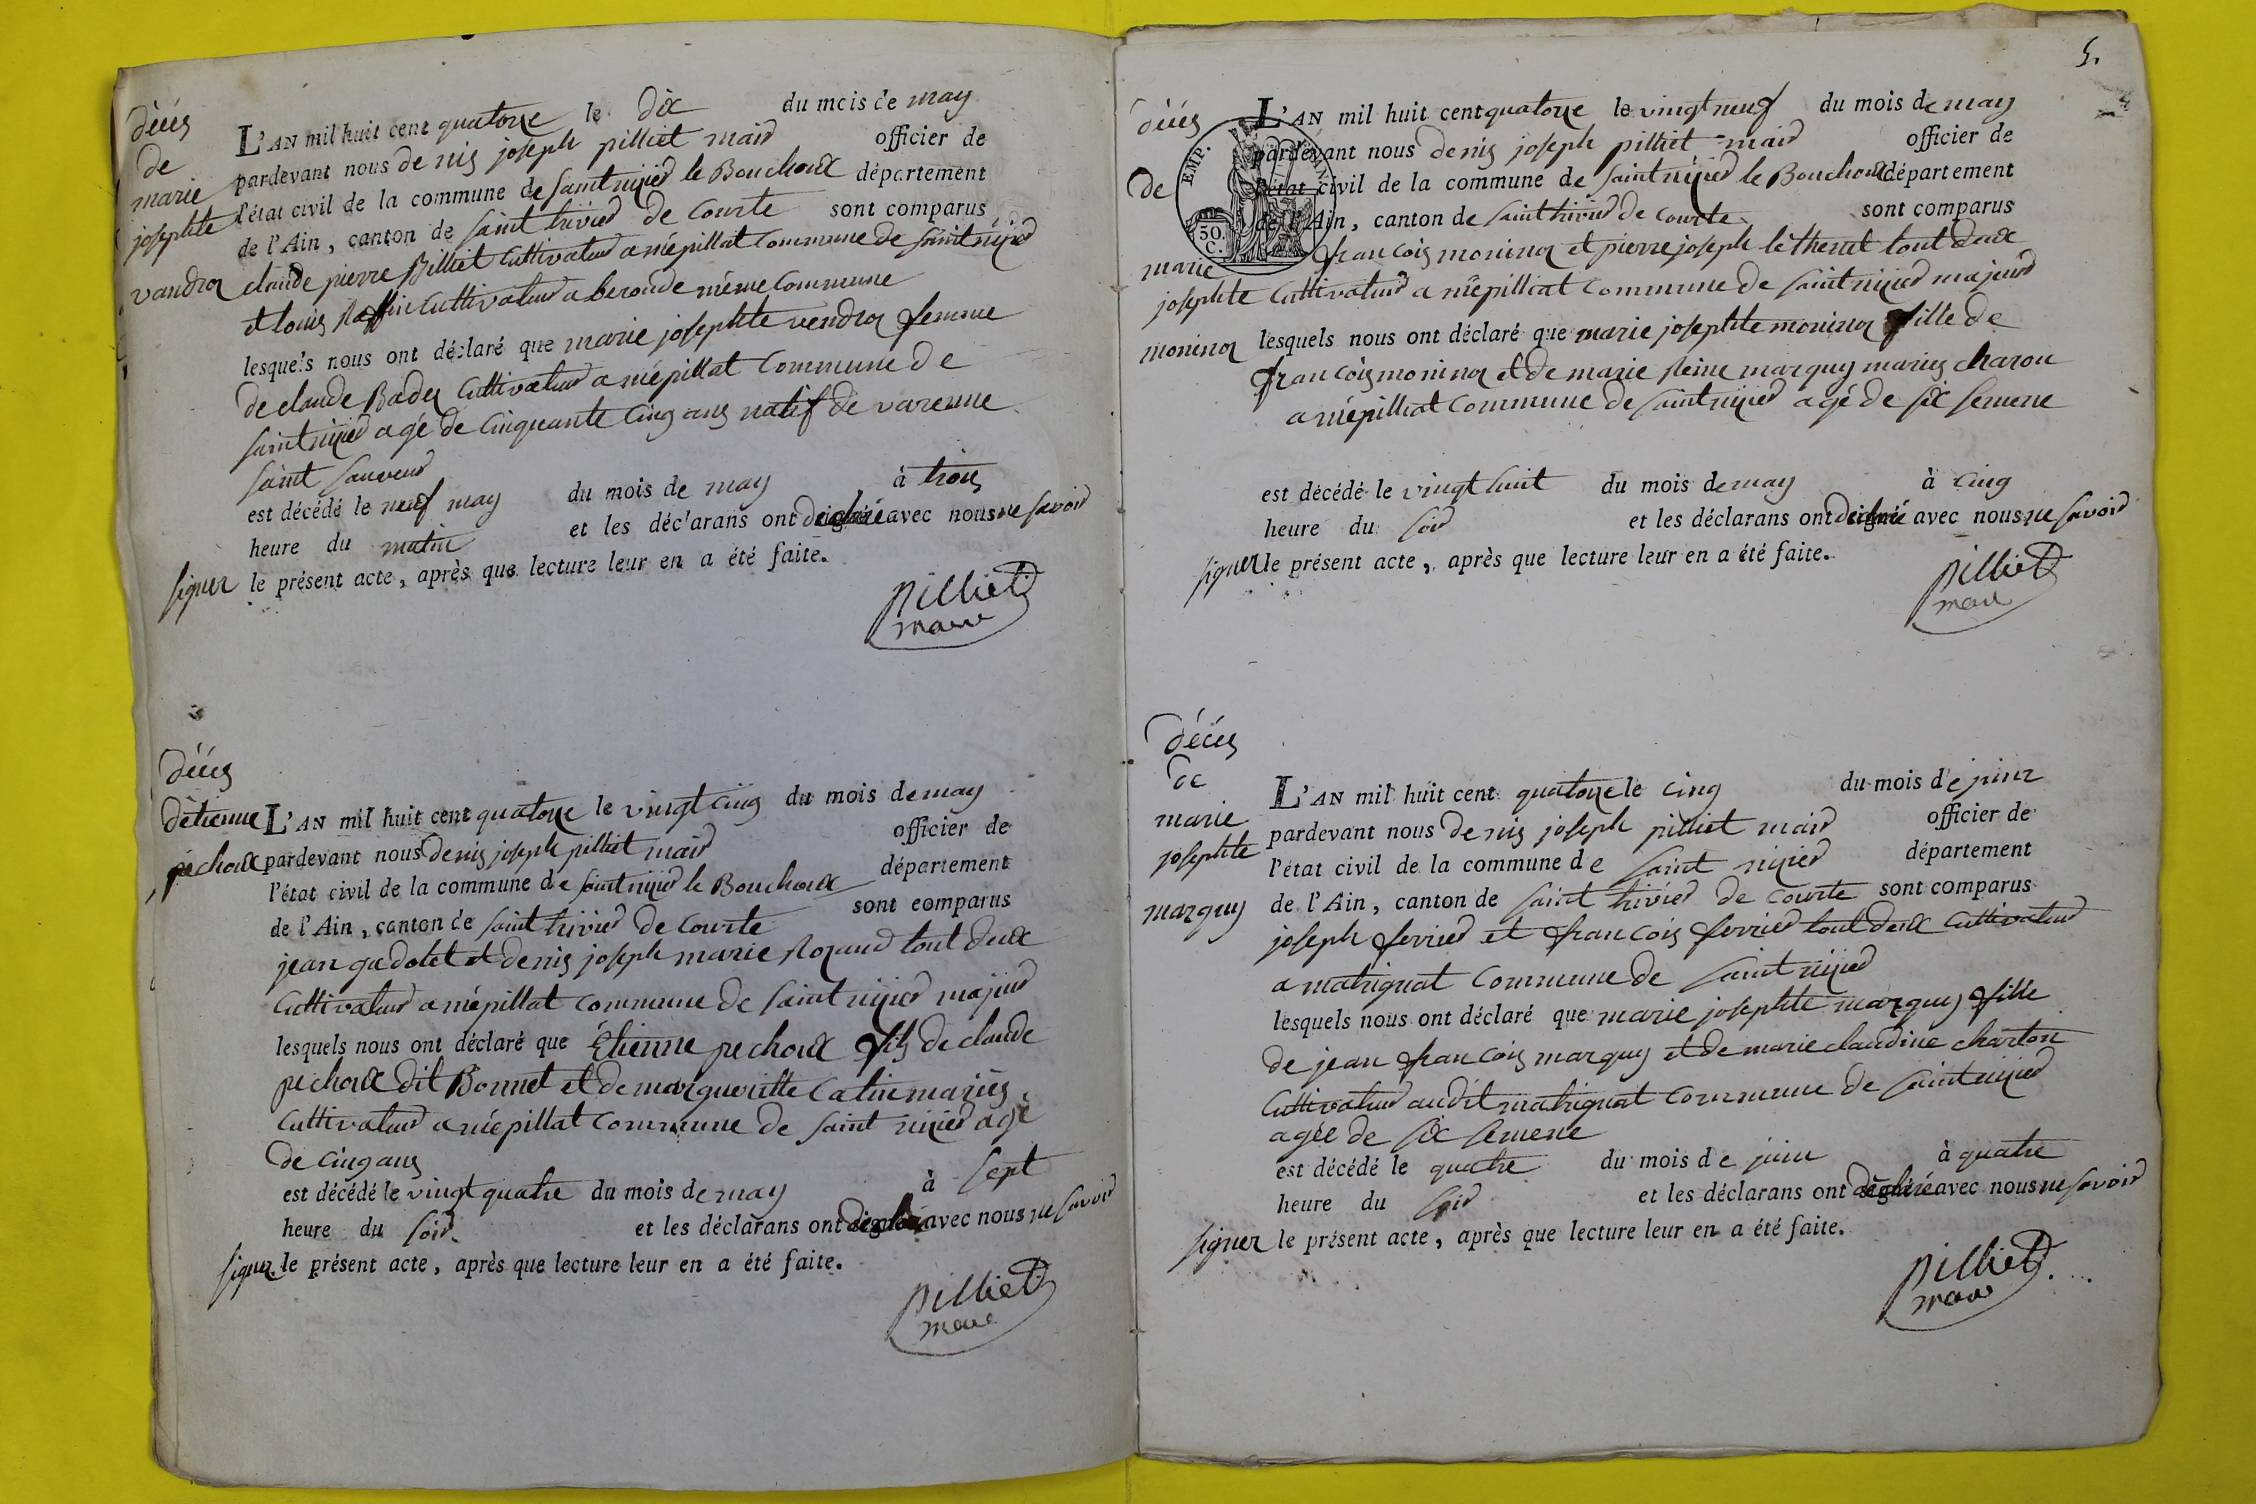 décès
de
marie
josephte
vandroz
L'AN mil huit cent quatorze le dix du mois de may
pardevant nous denis joseph pilliet maire officier de
l'état civil de la commune de saint nizier le Bouchoux département
de l'Ain, canton de saint trivier de courte sont comparus
claude pierre Billiet cultivateur a mépillat commune de saint nizier
et louis Raffin cultivateur a beroude même commune
lesquels nous ont déclaré que marie josephte vendroz femme
de claude Badez cultivateur a mépillat commune de
saint nizier agé de cinquante cinq ans natif de varenne
saint sauveur
est décédé le neuf may du mois de may à trois
heure du matin et les déclarans ont déclaré avec nous ne savoir
signer le présent acte, après que lecture leur en a été faite.
pilliet
maire
décès
détienne
pechoux
L'AN mil huit cent quatorze le vingt cinq du mois de may
pardevant nous denis joseph pilliet maire officier de
l'état civil de la commune de saint nizier le Bouchoux département
de l'Ain, canton de saint trivier de courte sont comparus
jean gadolet et denis joseph marie Rozand tout deux
cultivateur a mépillat commune de saint nizier majeur
lesquels nous ont déclaré que Étienne pechoux fils de claude
pechoux dit Bonnet et de margueritte Catin mariés
cultivateur a mépillat commune de saint nizier agé
de cinq ans
est décédé le vingt quatre du mois de may à sept
heure du soir et les déclarans ont déclaré avec nous ne savoir
signer le présent acte, après que lecture leur en a été faite.
pilliet
maire
5.
EMP.
50.
C.
décès
de
marie
josephte
moninoz
L'AN mil huit cent quatorze le vingt neuf du mois de may
pardevant nous denis joseph pilliet maire officier de
l'état civil de la commune de saint nizier le Bouchoux département
de l'Ain, canton de saint trivier de courte sont comparus
francois moninoz et pierre joseph léthenet tout deux
cultivateur a mépilliat commune de saint nizier majeur
lesquels nous ont déclaré que marie josephte moninoz fille de
francois moninoz et de marie Reine marguy mariés charon
a mépilliat commune de saint nizier agé de six semene
est décédé le vingt huit du mois de may à cinq
heure du soir et les déclarans ont déclaré avec nous ne savoir
signer le présent acte, après que lecture leur en a été faite.
pilliet
maire
décès
de
marie
josephte
marguy
L'AN mil huit cent quatorze le cinq du mois de juin
pardevant nous denis joseph pilliet maire officier de
l'état civil de la commune de saint nizier département
de l'Ain, canton de saint trivier de courte sont comparus
joseph ferrier et francois ferrier tout deux cultivateur
a matrignat commune de saint nizier
lesquels nous ont déclaré que marie josephte marguy fille
de jean francois marguy et de marie claudine charton
cultivateur audit matrignat commune de saint nizier
agée de six semene
est décédé le quatre du mois de juin à quatre
heure du soir et les déclarans ont déclaré avec nous ne savoir
signer le présent acte, après que lecture leur en a été faite.
pilliet
maire